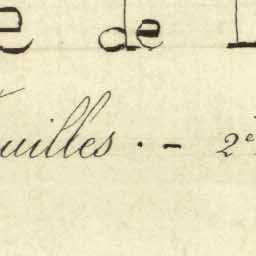 e de L
uilles. - 2e